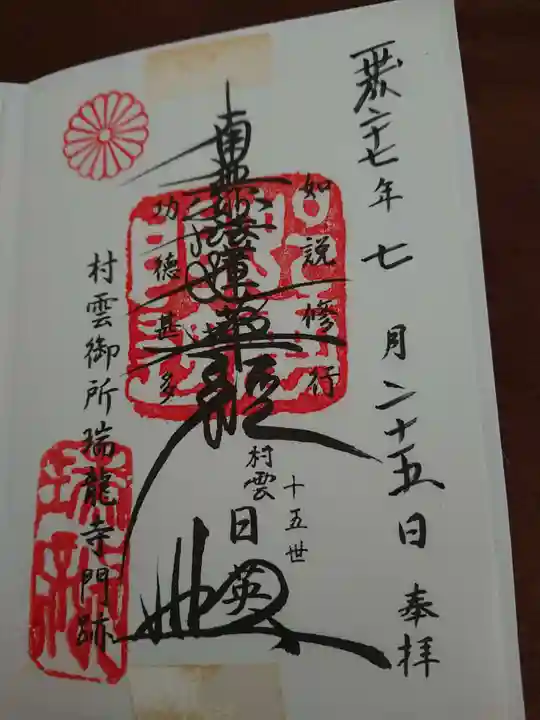 平成二十七年七月二十五日 奉拝
如説修行
南無妙法蓮華経
功徳甚多
十五世
村雲 日英
村雲御所瑞龍寺門跡